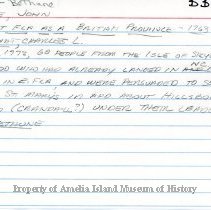 Bethune
BB
JOHN
FLA AS A BRITISH PROVINCE - 1763
CHARLES L.
60 PEOPLE FROM THE ISLE OF SKY
NC
WHO HAD ALREADY LANDED IN
IN E. FLA AND WERE PERSUADED TO S
ST MARYS IN AND ABOUT HILLSBO
(CRANDALL?) UNDER THEIR LEAD
BETHUNE
Property of Amelia Island Museum of History